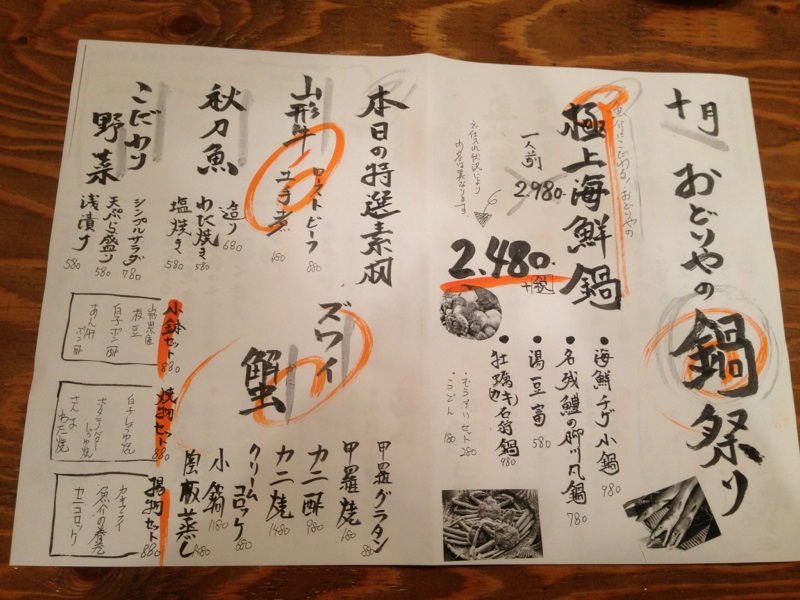 十月
おどりやの
鍋祭り
魚介にこだわる!おどりやの
極上海鮮鍋
一人前
2.980.
※仕入れ状況により
内容は異なります
2.480.
+税
●海鮮チゲ小鍋 980
●名残鱧の柳川風鍋 780
●湯豆富 580
●牡蠣の石狩鍋 980
・ぞうすいセット 280
・うどん 180
本日の特選素材
山形牛
ローストビーフ 880
土手煮 680
秋刀魚
造り 680
わた焼き 580
塩焼き 580
こだわり
野菜
シンプルサラダ 780
天ぷら盛り 580
浅漬け 580
ズワイ
蟹
かに
甲羅グラタン 880
甲羅焼
カニ酢 980
カニ焼 1480
クリームコロッケ 880
小鍋 1180
陶板蒸し 1480
小鉢セット 880
枝豆
白子ポン酢
あん肝ポン酢
焼物セット 880
白子しょうゆ焼
ホタテバターしょうゆ焼
さんまわた焼
揚物セット 880
カキフライ
魚介の春巻
カニコロッケ